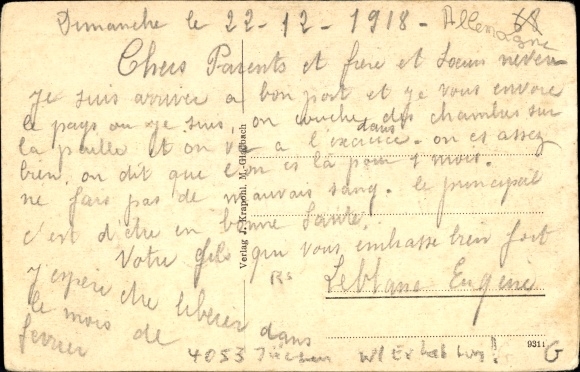 Dimanche le 22-12-1918 - Allemagne
68
Chers Parents et frere et Soeurs neveu
je suis arriver a bon port et je vous envore
le pays ou je suis, on couche des chambres sur
dans
la paille et on va a l'exercice. on es assez
bien, on dit que l'on es là pour 1 mois.
ne fais pas de mauvais sang. le principal
c'est d'etre en bonne Santé.
Votre fils qui vous embrasse bien fort
Leblanc Eugene
j'espere etre liberer dans
le mois de
fevrier
Rs
Verlag J. Krapohl, M.-Gladbach
9311
4053 Jüchen
G